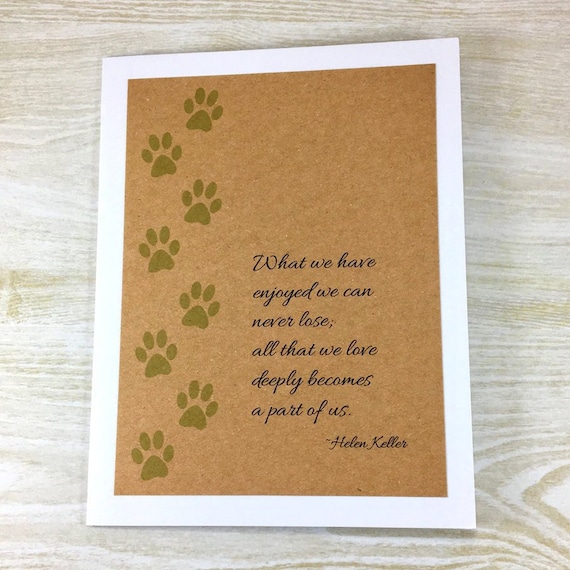 What we have
enjoyed we can
never lose;
all that we love
deeply becomes
a part of us.
~Helen Keller